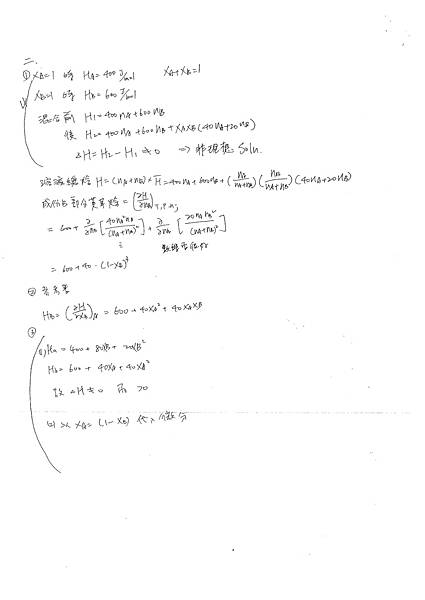 二、
① X_A=1 時 H_A=400 J/mol X_A+X_B=1
X_B=1 時 H_B=600 J/mol
混合前 H_1=400n_A+600n_B
後 H_2=400n_A+600n_B+X_AX_B(40n_A+20n_B)
ΔH=H_2-H_1≠0 ⇒ 非理想 Soln.
溶液總焓 H=(n_A+n_B)×H̄=400n_A+600n_B+(n_A/(n_A+n_B))(n_B/(n_A+n_B))(40n_A+20n_B)
成份B部分莫耳焓=(∂H/∂n_B)_T,P,n_j
=600+∂/∂n_B[40n_A²n_B/(n_A+n_B)²]+∂/∂n_B[20n_An_B²/(n_A+n_B)²]
=600+40·(1-X_B)³
② 參考書
H_B=(∂H/∂X_B)=600+40X_A²+40X_AX_B
③
(1) H_A=400+80X_B+20X_B²
H_B=600+40X_A+40X_A²
故 ΔH≠0 而 >0
可以 X_A=(1-X_B) 代入微分